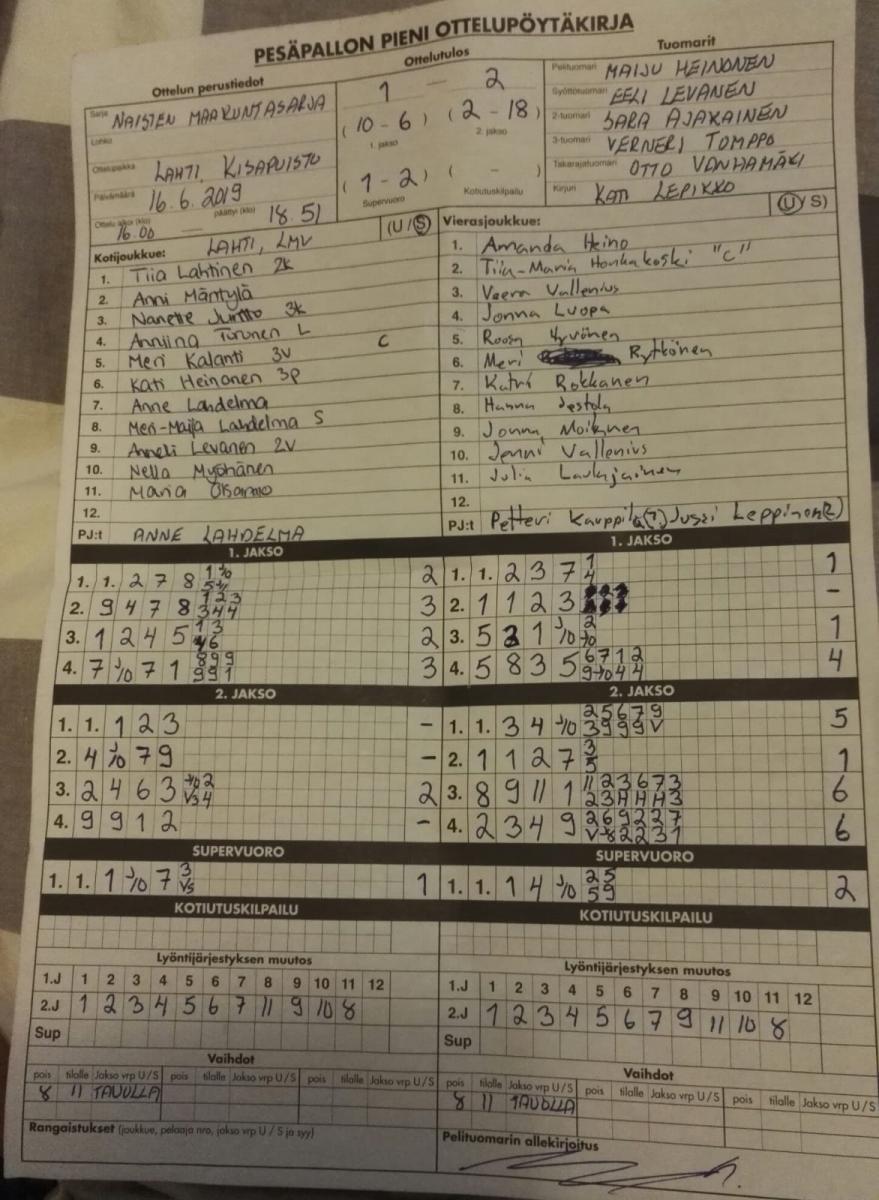 PESÄPALLON PIENI OTTELUPÖYTÄKIRJA
Ottelun perustiedot
Ottelutulos
Tuomarit
Sarja NAISTEN MAAKUNTASARJA
Lohko
Ottelupaikka LAHTI, KISAPUISTO
Päivämäärä 16.6.2019
Ottelu alkoi (klo) 16.00 — päättyi (klo) 18.51
1 — 2
(10 - 6) (2 - 18)
1. jakso 2. jakso
(1 - 2) ( - )
Supervuoro Kotiutuskilpailu
Pelituomari MAIJU HEINONEN
Syöttötuomari EELI LEVANEN
2-tuomari SARA AJAKAINEN
3-tuomari VERNERI TOMPPO
Takarajatuomari OTTO VANHAMÄKI
Kirjuri KATI LEPIKKO
Kotijoukkue: LAHTI, LMV (U/S)
1. Tiia Lahtinen 2k
2. Anni Mäntylä
3. Nanette Juntto 3k
4. Anniina Turunen L
5. Meri Kalanti 3V C
6. Kati Heinonen 3p
7. Anne Lahdelma
8. Meri-Maija Lahdelma S
9. Anneli Levanen 2V
10. Nella Myöhänen
11. Maria
12.
PJ:t ANNE LAHDELMA
Vierasjoukkue: (U/S)
1. Amanda Heino
2. Tiia-Maria Honkakoski "C"
3. Veera Vallenius
4. Jonna Luopa
5. Roosa Hyvönen
6. Meri Rytkönen
7. Katri Rokkanen
8. Hanna Jestola
9. Jonna Moilanen
10. Jenni Vallenius
11. Julia
12.
PJ:t Petteri Kauppila(?) Jussi Leppinen(2)
1. JAKSO
1. 1. 2 7 8 2
2. 9 4 7 8 3
3. 1 2 4 5 2
4. 7 J/0 7 1 3
1. JAKSO
1. 1. 2 3 7 1
2. 1 1 2 3 -
3. 5 2 1 J/0 1
4. 5 8 3 5 4
2. JAKSO
1. 1. 1 2 3 -
2. 4 J/0 7 9 -
3. 2 4 6 3 2
4. 9 9 1 2 -
2. JAKSO
1. 1. 3 4 J/0 5
2. 1 1 2 7 1
3. 8 9 11 1 6
4. 2 3 4 9 6
SUPERVUORO
1. 1. 1 J/0 7 1
SUPERVUORO
1. 1. 1 4 J/0 2
KOTIUTUSKILPAILU
KOTIUTUSKILPAILU
Lyöntijärjestyksen muutos
1.J 1 2 3 4 5 6 7 8 9 10 11 12
2.J 1 2 3 4 5 6 7 11 9 10 8
Sup
Lyöntijärjestyksen muutos
1.J 1 2 3 4 5 6 7 8 9 10 11 12
2.J 1 2 3 4 5 6 7 9 11 10 8
Sup
Vaihdot
pois tilalle Jakso vrp U/S pois tilalle Jakso vrp U/S pois tilalle Jakso vrp U/S
8 11 TAUOLLA
Vaihdot
pois tilalle Jakso vrp U/S pois tilalle Jakso vrp U/S pois tilalle Jakso vrp U/S
8 11 TAUOLLA
Rangaistukset (joukkue, pelaaja nro, jakso vrp U/S ja syy)
Pelituomarin allekirjoitus